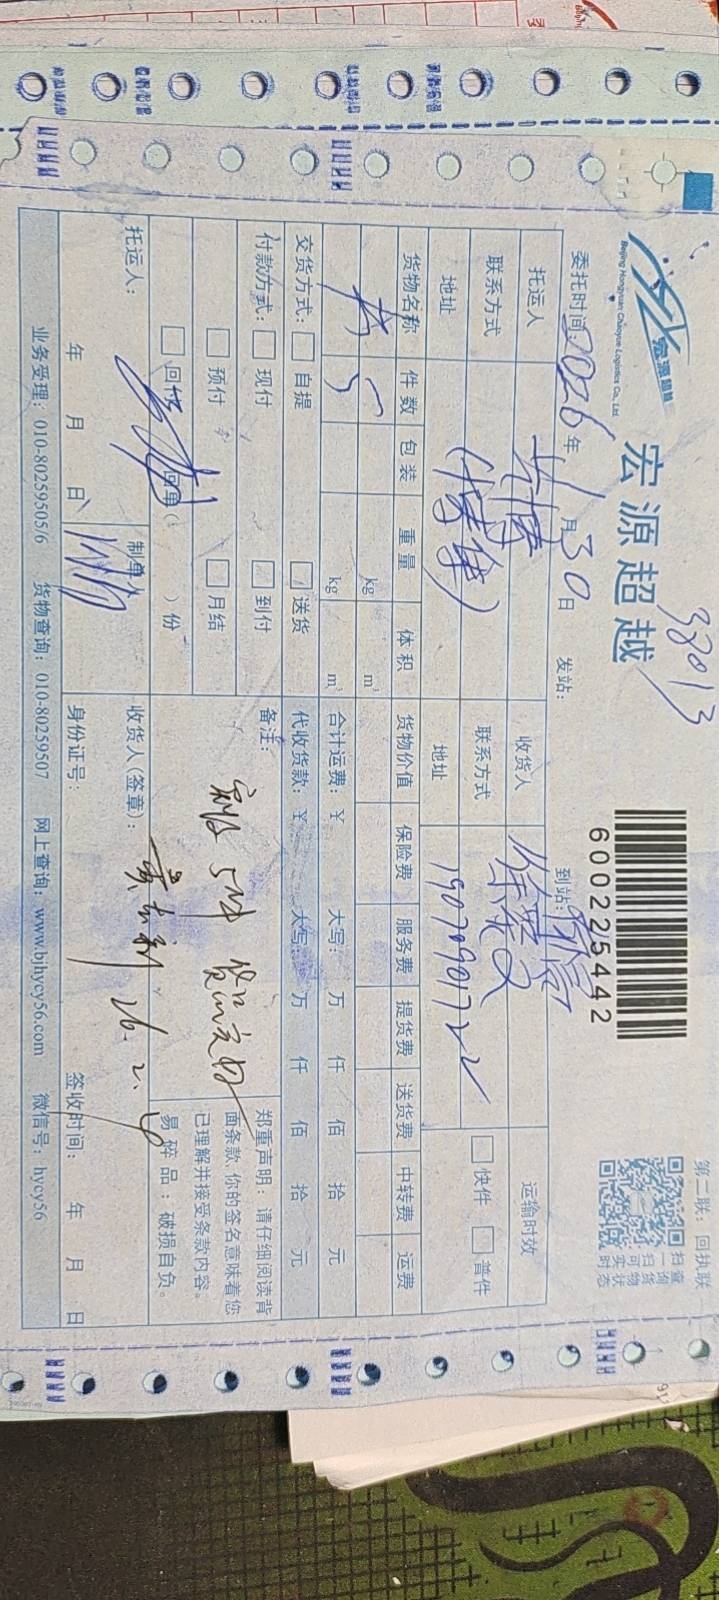 宏源超越
Beijing Hongyuan Chaoyue Logistics Co., Ltd
宏源超越
38013
600225442
第二联：回执联
扫一扫可实时
查询货物状态
委托时间 2026 年 1 月 30 日
发站：
到站：
托运人
收货人
运输时效
联系方式
联系方式
19070901722
快件 普件
地址
地址
货物名称 件数 包装 重量 体积 货物价值 保险费 服务费 提货费 送货费 中转费 运费
5 kg m³
kg m³
合计运费：￥ 大写： 万 仟 佰 拾 元
交货方式： 自提 送货
代收货款：￥ 大写： 万 仟 佰 拾 元
付款方式： 现付 到付
备注：
预付 月结
5件
回单( )份
郑重声明：请仔细阅读背面条款，你的签名意味着您已理解并接受条款内容。
易碎品：破损自负。
托运人：
年 月 日
制单人
收货人(签章)：
26.2.6
身份证号：
签收时间： 年 月 日
业务受理：010-80259505/6 货物查询：010-80259507 网上查询：www.bjhycy56.com 微信号：hycy56